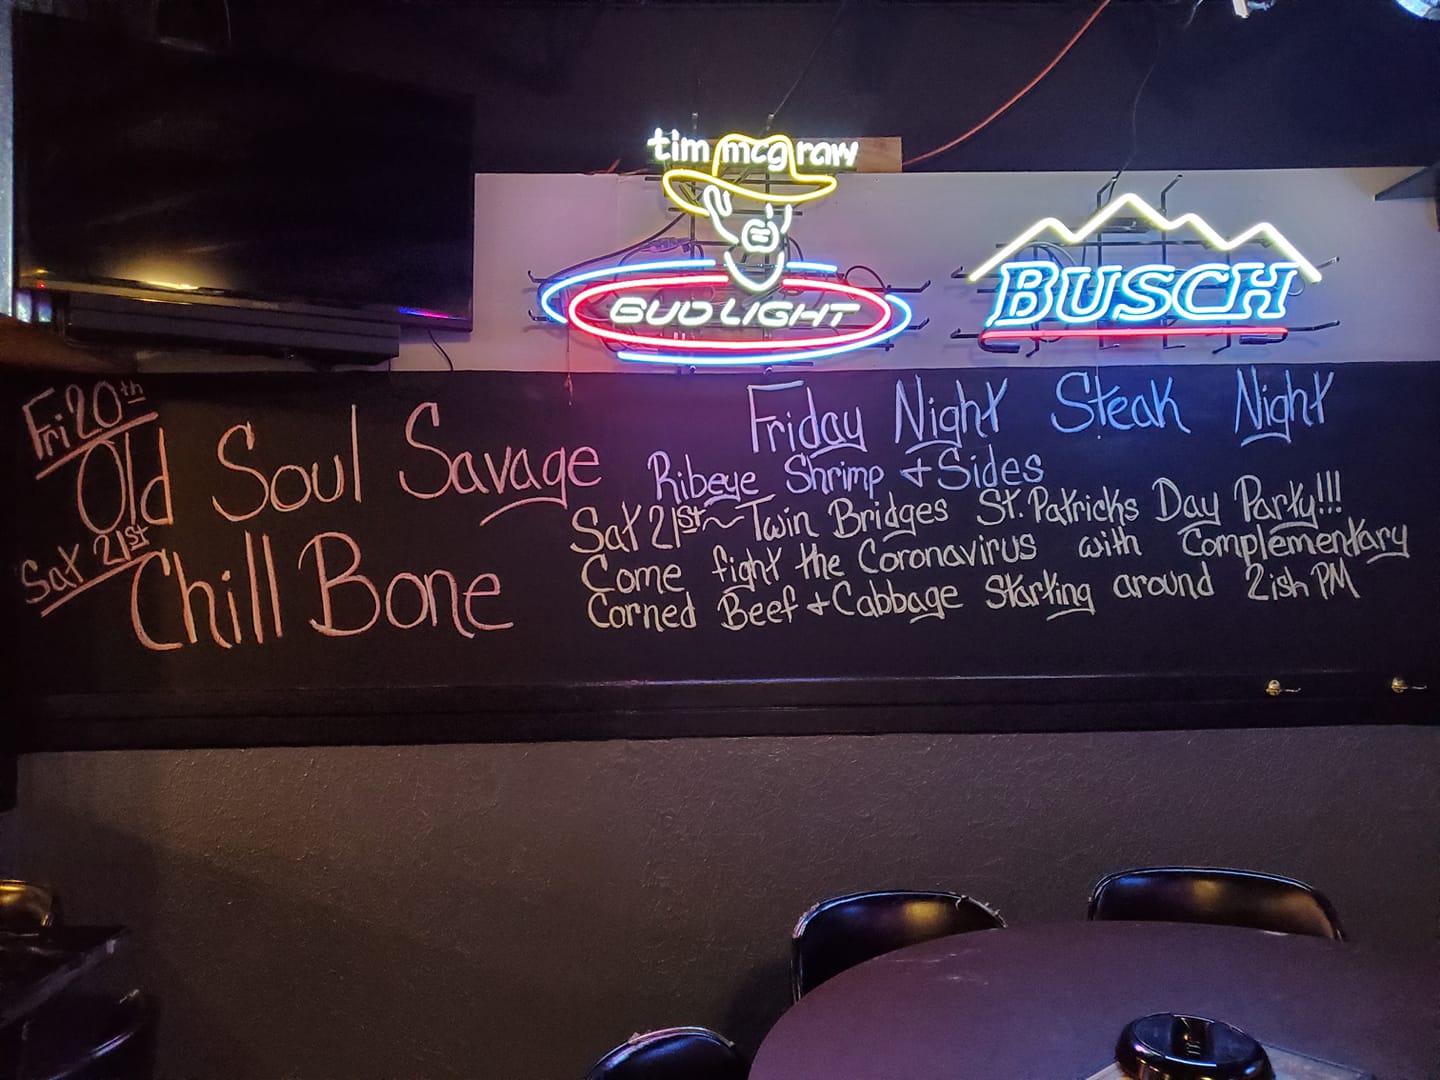 tim mcgraw
BUD LIGHT
BUSCH
Fri 20th
Old Soul Savage
Sat 21st
Chill Bone
Friday Night Steak Night
Ribeye Shrimp + Sides
Sat 21st ~ Twin Bridges St. Patricks Day Party!!!
Come fight the Coronavirus with Complementary
Corned Beef + Cabbage Starting around 2ish PM